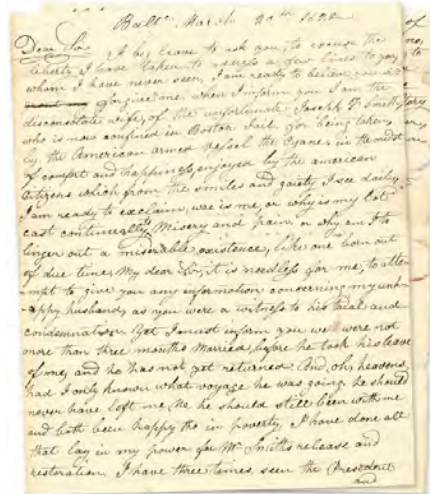 Balt. March 20th 1822
Dear Sir I beg leave to ask you, to excuse the
liberty I have taken to address a few lines to you
whom I have never seen, I am ready to believe you
forgive me, when I inform you I am the
disconsolate wife, of the unfortunate Joseph F. Smith,
who is now confined in Boston Jail. for being taken
by, the American armed vessel the Cyane, in the midst
of comfort and happiness, enjoyed by the american
citizens which from the smiles and gaiety I see daily
I am ready to exclaim, woe is me, or why is my lot
cast continually, Misery and pain, or why am I to
linger out a miserable existence, like one born out
of due time, My dear Sir, it is needless for me, to atte-
-mpt to give you any information concerning my unh-
-appy husband, as you were a witness to his trial and
condemnation Yet I must inform you we were not
more than three months Married, before he took his leave
of me, and he has not yet returned And, oh, heavens,
had I only known what voyage he was going he should
never have left me, No he should still been with me
and both been happy tho in poverty, I have done all
that lay in my power for Mr Smiths release and
restoration. I have three times, seen the President
and